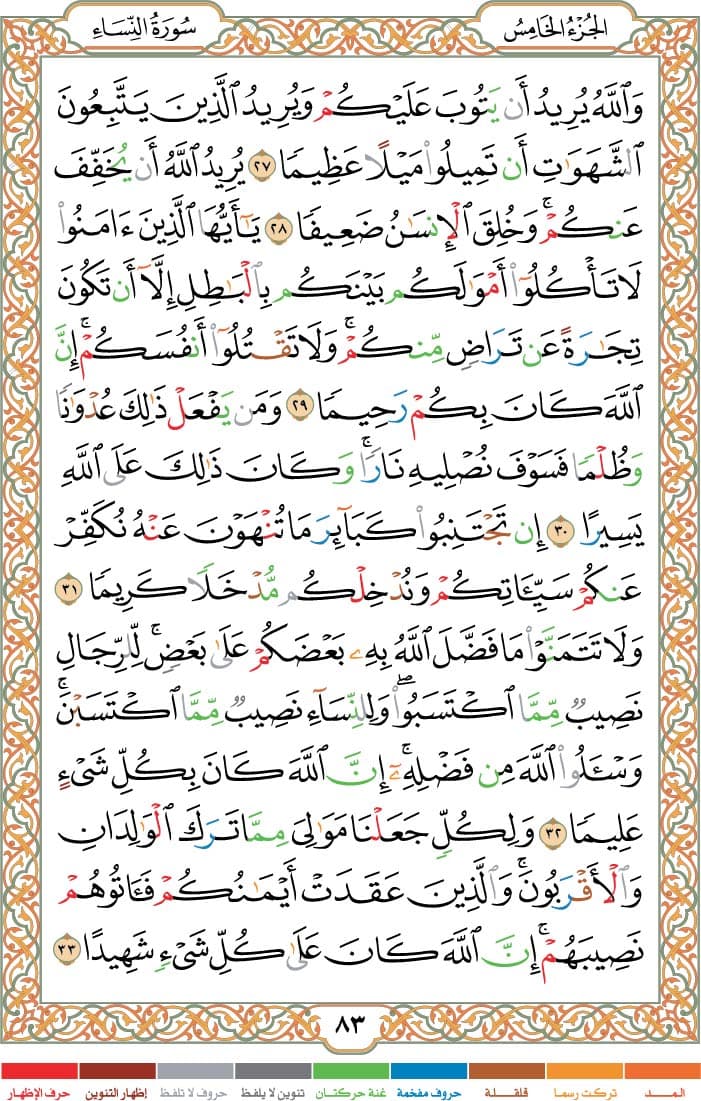 الجُزْءُ الخَامِسُ
سُورَةُ النِّسَاءِ
وَٱللَّهُ يُرِيدُ أَن يَتُوبَ عَلَيْكُمْ وَيُرِيدُ ٱلَّذِينَ يَتَّبِعُونَ
ٱلشَّهَوَٰتِ أَن تَمِيلُوا۟ مَيْلًا عَظِيمًا ٢٧ يُرِيدُ ٱللَّهُ أَن يُخَفِّفَ
عَنكُمْ ۚ وَخُلِقَ ٱلْإِنسَٰنُ ضَعِيفًا ٢٨ يَٰٓأَيُّهَا ٱلَّذِينَ ءَامَنُوا۟
لَا تَأْكُلُوٓا۟ أَمْوَٰلَكُم بَيْنَكُم بِٱلْبَٰطِلِ إِلَّآ أَن تَكُونَ
تِجَٰرَةً عَن تَرَاضٍ مِّنكُمْ ۚ وَلَا تَقْتُلُوٓا۟ أَنفُسَكُمْ ۚ إِنَّ
ٱللَّهَ كَانَ بِكُمْ رَحِيمًا ٢٩ وَمَن يَفْعَلْ ذَٰلِكَ عُدْوَٰنًا
وَظُلْمًا فَسَوْفَ نُصْلِيهِ نَارًا ۚ وَكَانَ ذَٰلِكَ عَلَى ٱللَّهِ
يَسِيرًا ٣٠ إِن تَجْتَنِبُوا۟ كَبَآئِرَ مَا تُنْهَوْنَ عَنْهُ نُكَفِّرْ
عَنكُمْ سَيِّـَٔاتِكُمْ وَنُدْخِلْكُم مُّدْخَلًا كَرِيمًا ٣١
وَلَا تَتَمَنَّوْا۟ مَا فَضَّلَ ٱللَّهُ بِهِۦ بَعْضَكُمْ عَلَىٰ بَعْضٍ ۚ لِّلرِّجَالِ
نَصِيبٌ مِّمَّا ٱكْتَسَبُوا۟ ۖ وَلِلنِّسَآءِ نَصِيبٌ مِّمَّا ٱكْتَسَبْنَ ۚ
وَسْـَٔلُوا۟ ٱللَّهَ مِن فَضْلِهِۦٓ ۗ إِنَّ ٱللَّهَ كَانَ بِكُلِّ شَىْءٍ
عَلِيمًا ٣٢ وَلِكُلٍّ جَعَلْنَا مَوَٰلِىَ مِمَّا تَرَكَ ٱلْوَٰلِدَانِ
وَٱلْأَقْرَبُونَ ۚ وَٱلَّذِينَ عَقَدَتْ أَيْمَٰنُكُمْ فَـَٔاتُوهُمْ
نَصِيبَهُمْ ۚ إِنَّ ٱللَّهَ كَانَ عَلَىٰ كُلِّ شَىْءٍ شَهِيدًا ٣٣
٨٣
المـــد تركت رسما قلقـــلة حروف مفخمة غنة حركتـان تنوين لا يلفظ حروف لا تلفظ إظهار التنوين حرف الإظهار